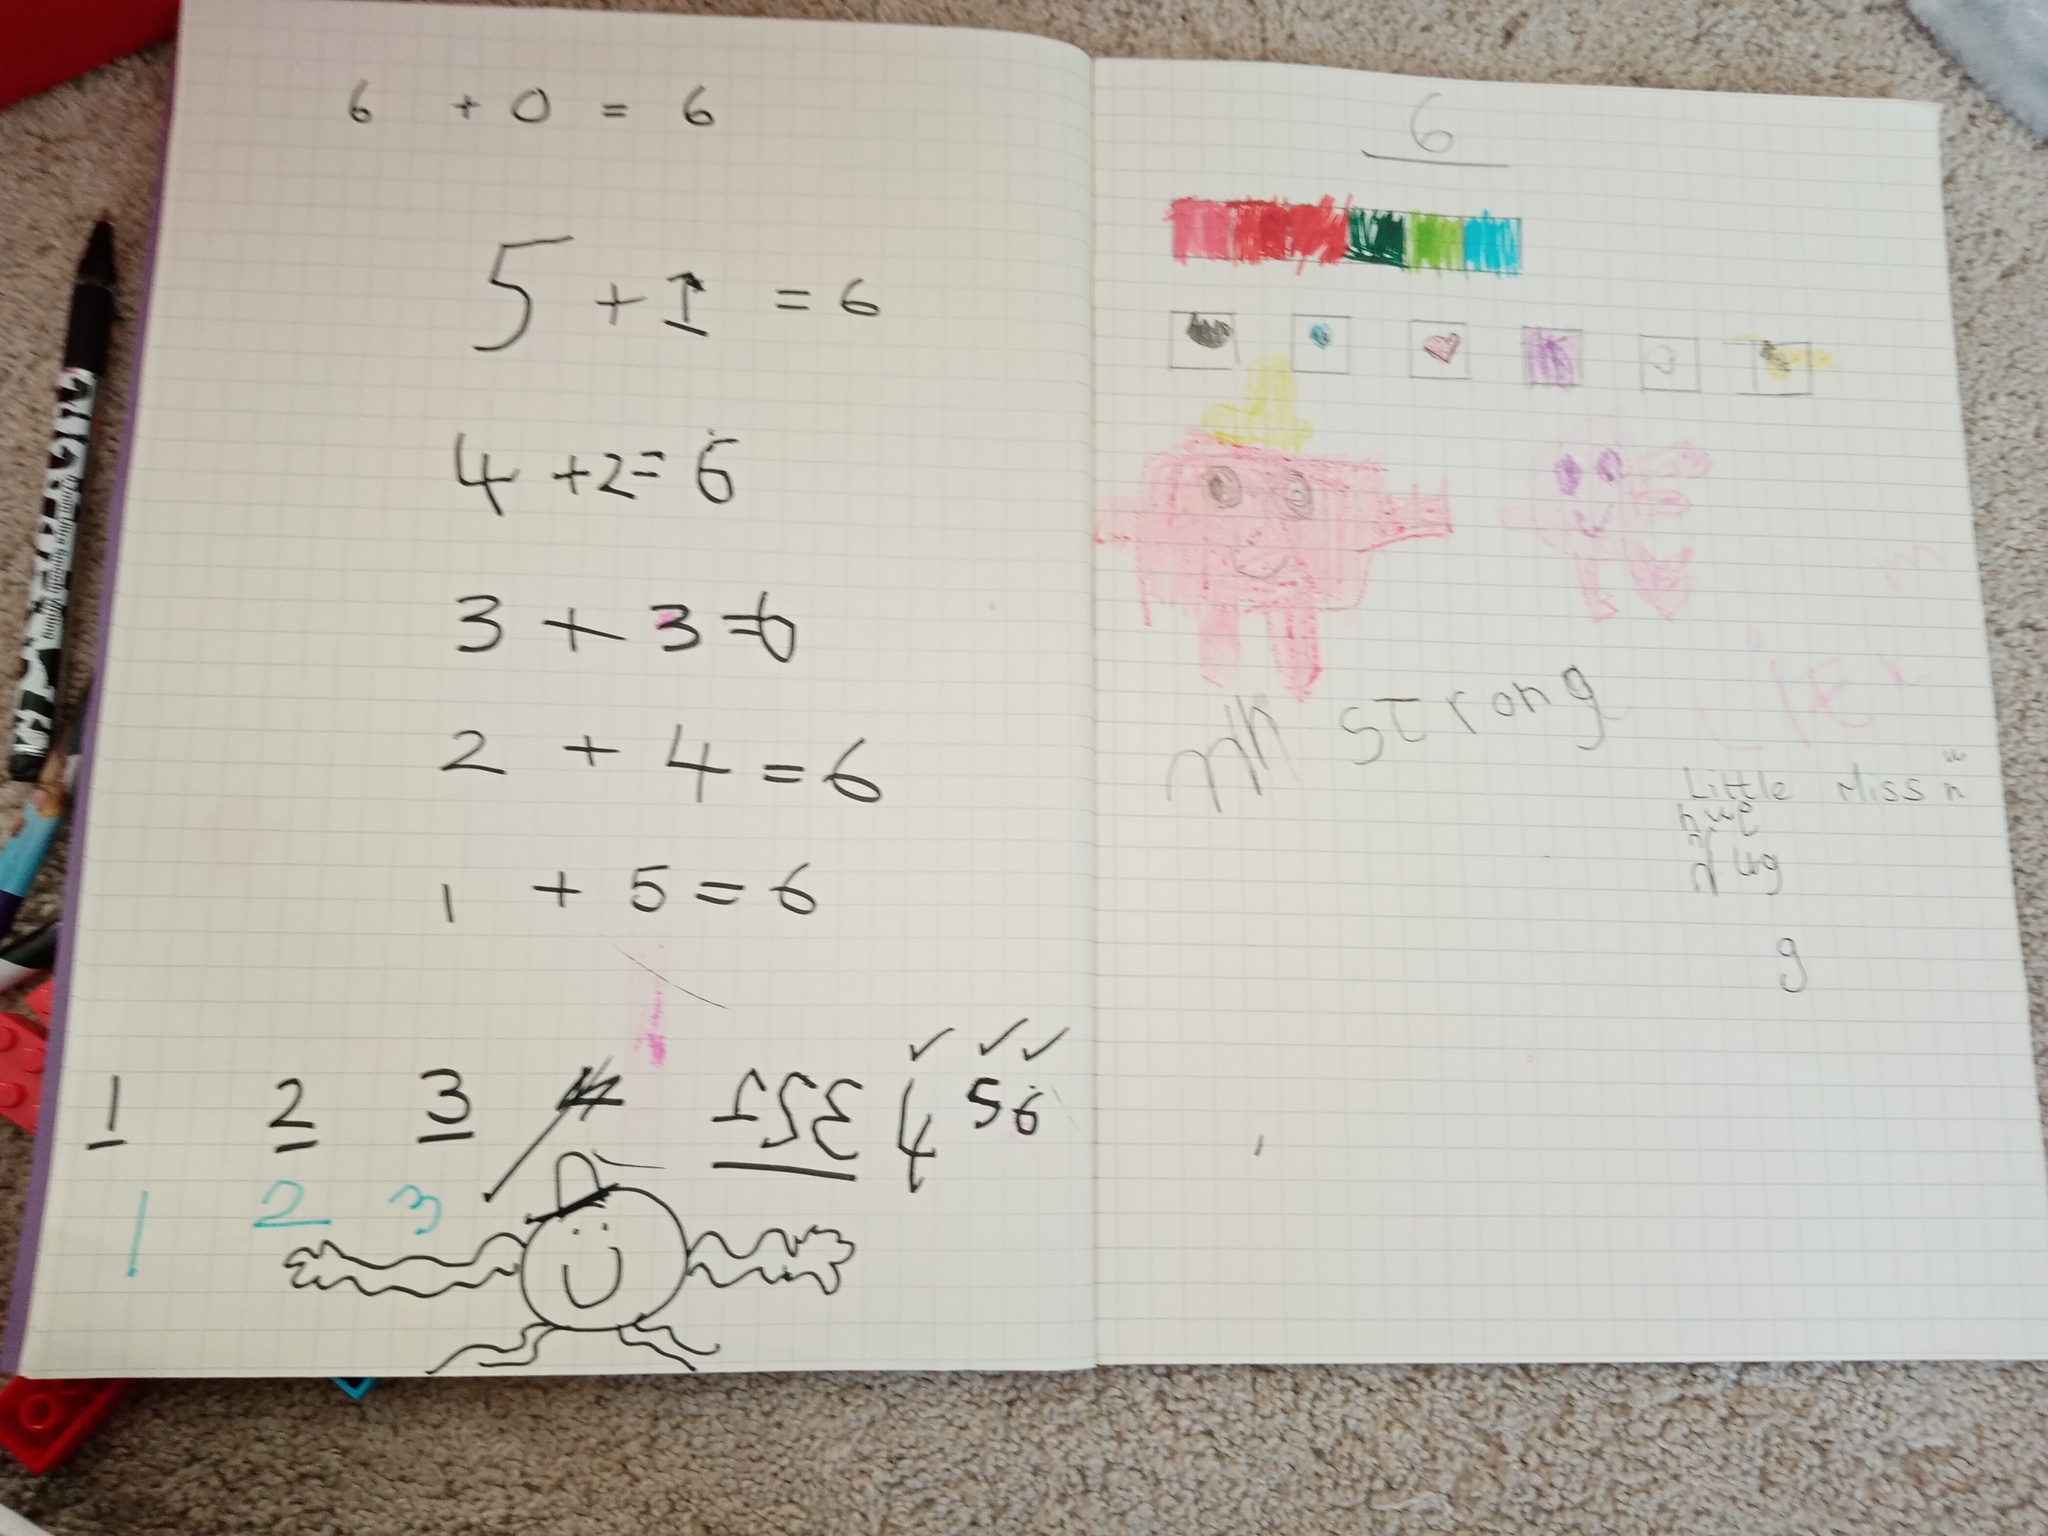 6 + 0 = 6
5 + 1 = 6
4 + 2 = 6
3 + 3 = 6
2 + 4 = 6
1 + 5 = 6
1 2 3 4 1 2 3 4 5 6
1 2 3
6
strong
Little Miss
hug
g